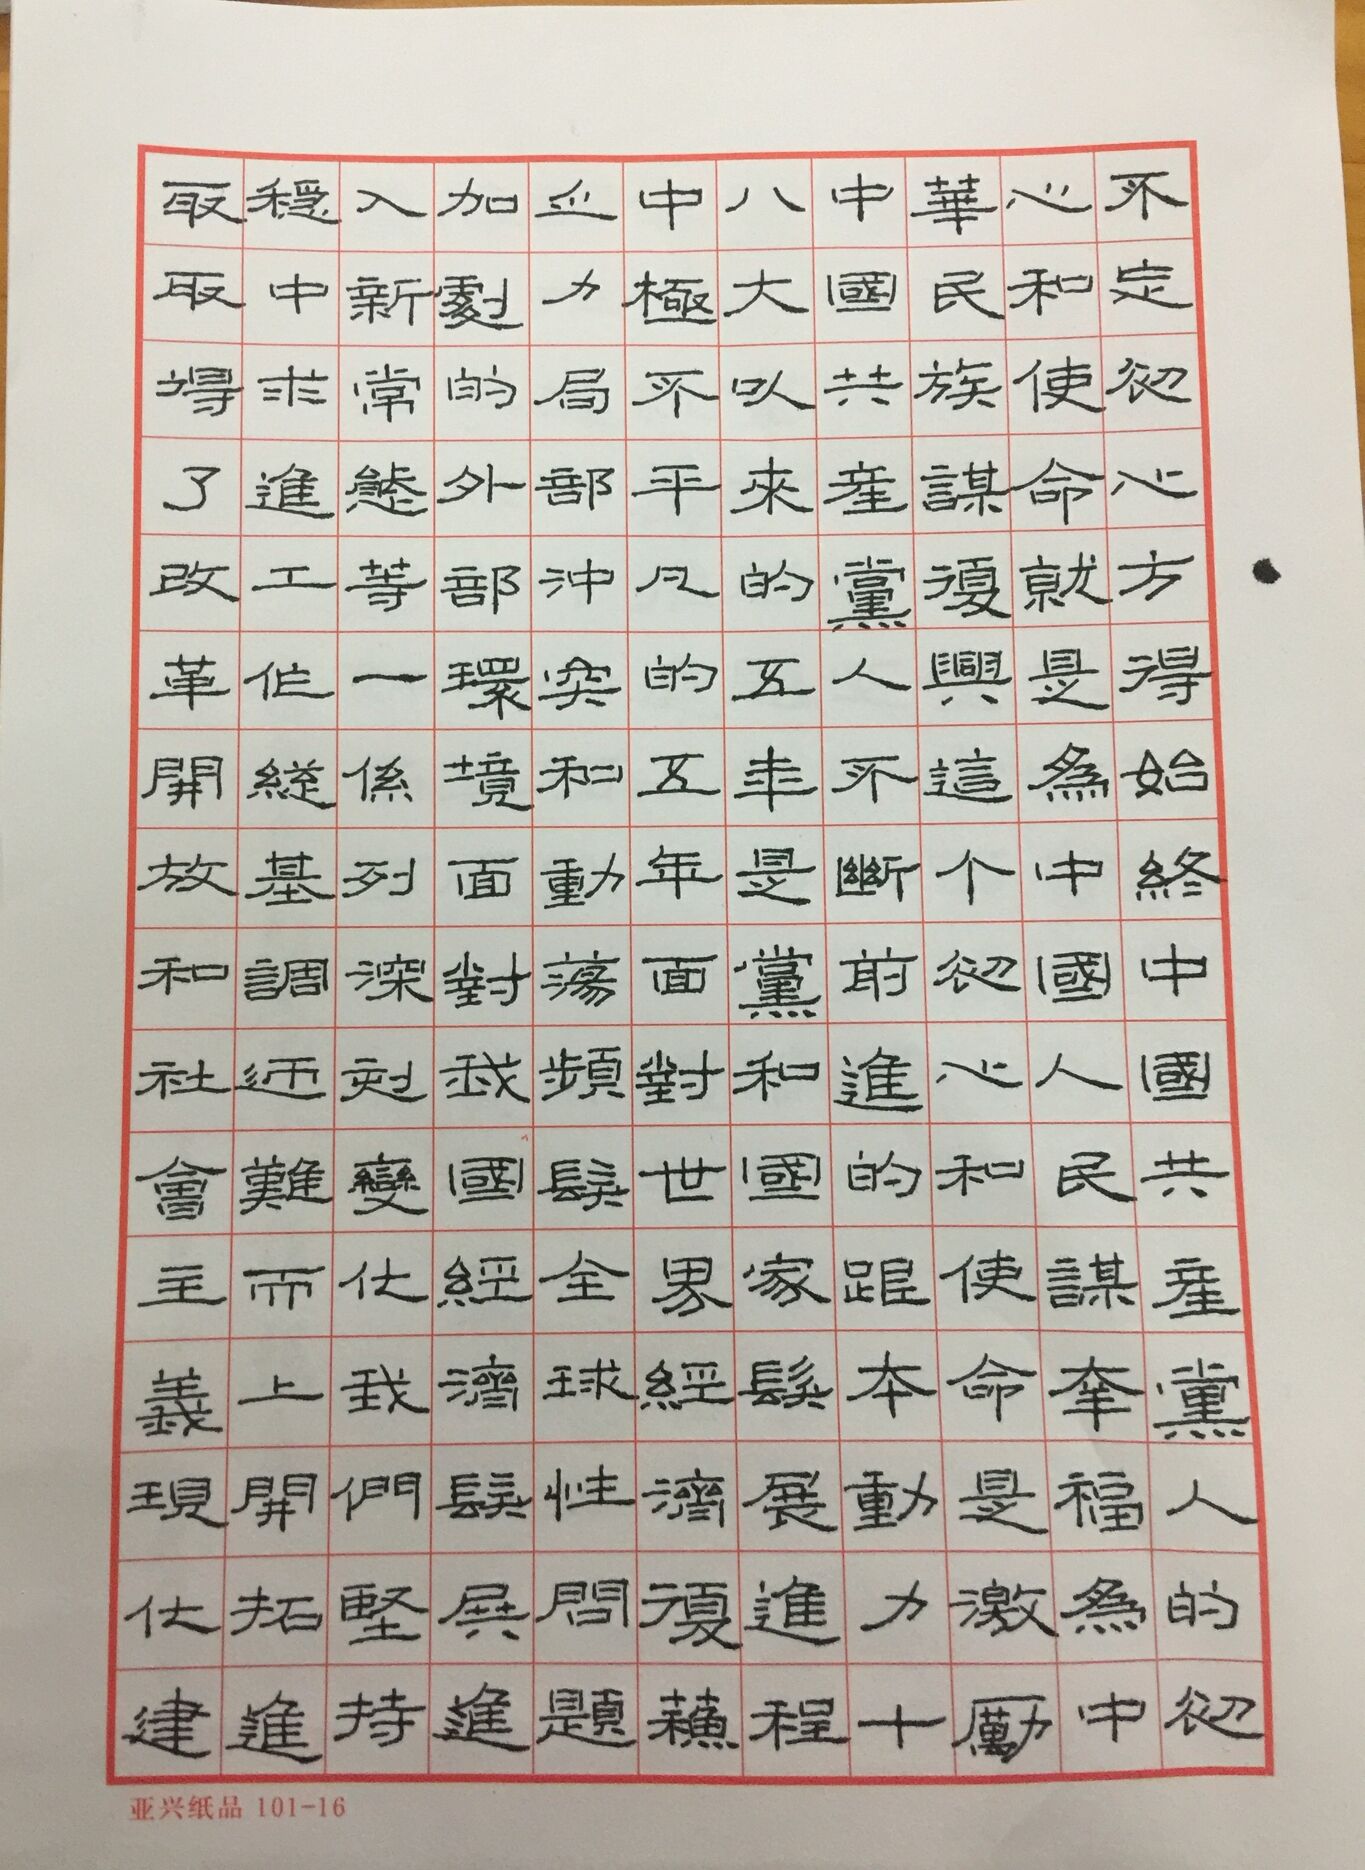 不忘初心方得始終中國共産黨人的初
心和使命就是爲中國人民謀幸福爲中
華民族謀復興這个初心和使命是激勵
中國共産黨人不斷前進的跟本動力十
八大以來的五年是黨和國家髮展進程
中極不平凡的五年面對世界經濟復蘇
乏力局部沖突和動蕩頻髮全球性問題
加劇的外部環境面對我國經濟髮展進
入新常態等一係列深刻變化我們堅持
穩中求進工作總基調迎難而上開拓進
取取得了改革開放和社會主義現代建
亚兴纸品 101-16